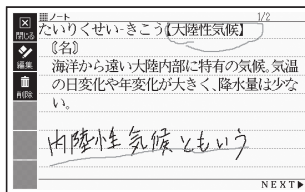 閉じる
編集
削除
ノート 1/2
たいりくせい-きこう【大陸性気候】
〖名〗
海洋から遠い大陸内部に特有の気候。気温
の日変化や年変化が大きく、降水量は少な
い。
内陸性気候ともいう
NEXT▶